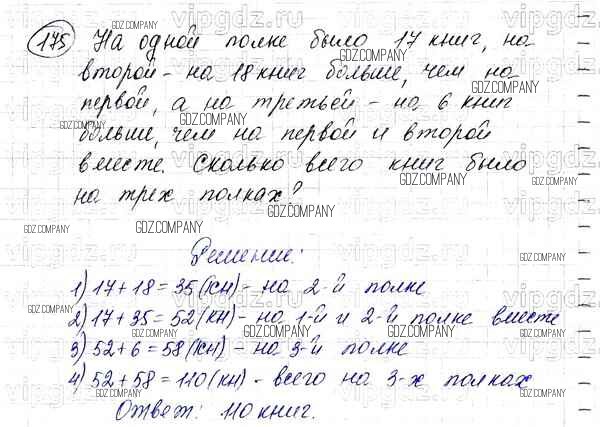 175 На одной полке было 17 книг, на
второй - на 18 книг больше, чем на
первой, а на третьей - на 6 книг
больше, чем на первой и второй
вместе. Сколько всего книг было
на трех полках?
Решение:
1) 17 + 18 = 35 (кн) - на 2-й полке
2) 17 + 35 = 52 (кн) - на 1-й и 2-й полке вместе
3) 52 + 6 = 58 (кн) - на 3-й полке
4) 52 + 58 = 110 (кн) - всего на 3-х полках
Ответ: 110 книг.